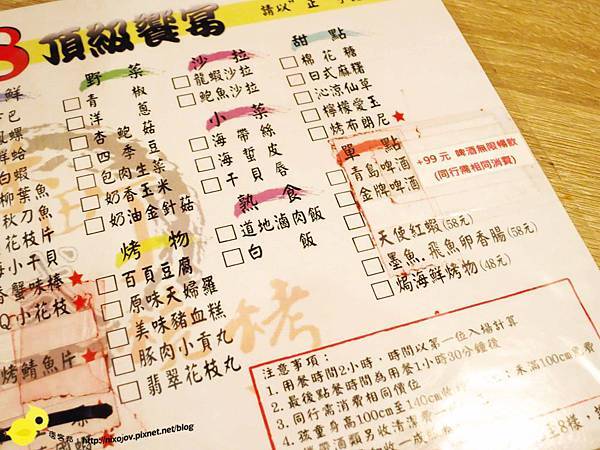 8 頂級饗宴
請以"正
鮮
巴
風螺
鮮蛤
白蝦
柳葉魚
秋刀魚
花枝片
小干貝
蟹味棒★
Q小花枝★
烤鯖魚片★
野菜
青椒
洋蔥
杏鮑菇
四季豆
包肉生菜
奶香玉米
奶油金針菇
烤物
百頁豆腐
原味天婦羅
美味豬血糕
豚肉小貢丸
翡翠花枝丸
沙拉
龍蝦沙拉
鮑魚沙拉
小菜
海帶絲
海蜇皮
干貝唇
熟食
道地滷肉飯
白飯
甜點
棉花糖
日式麻糬
沁涼仙草
檸檬愛玉
烤布朗尼★
單點
青島啤酒
金牌啤酒
+99元 啤酒無限暢飲
(同行需相同消費)
天使紅蝦(58元)
墨魚.飛魚卵香腸(58元)
焗海鮮烤物(48元)
注意事項：
1.用餐時間2小時：時間以第一位入場計算
2.最後點餐時間為用餐1小時30分鐘後
3.同行需消費相同價位
4.孩童身高100cm至140cm
未滿100cm免費
痞客邦
http://nixojov.pixnet.net/blog